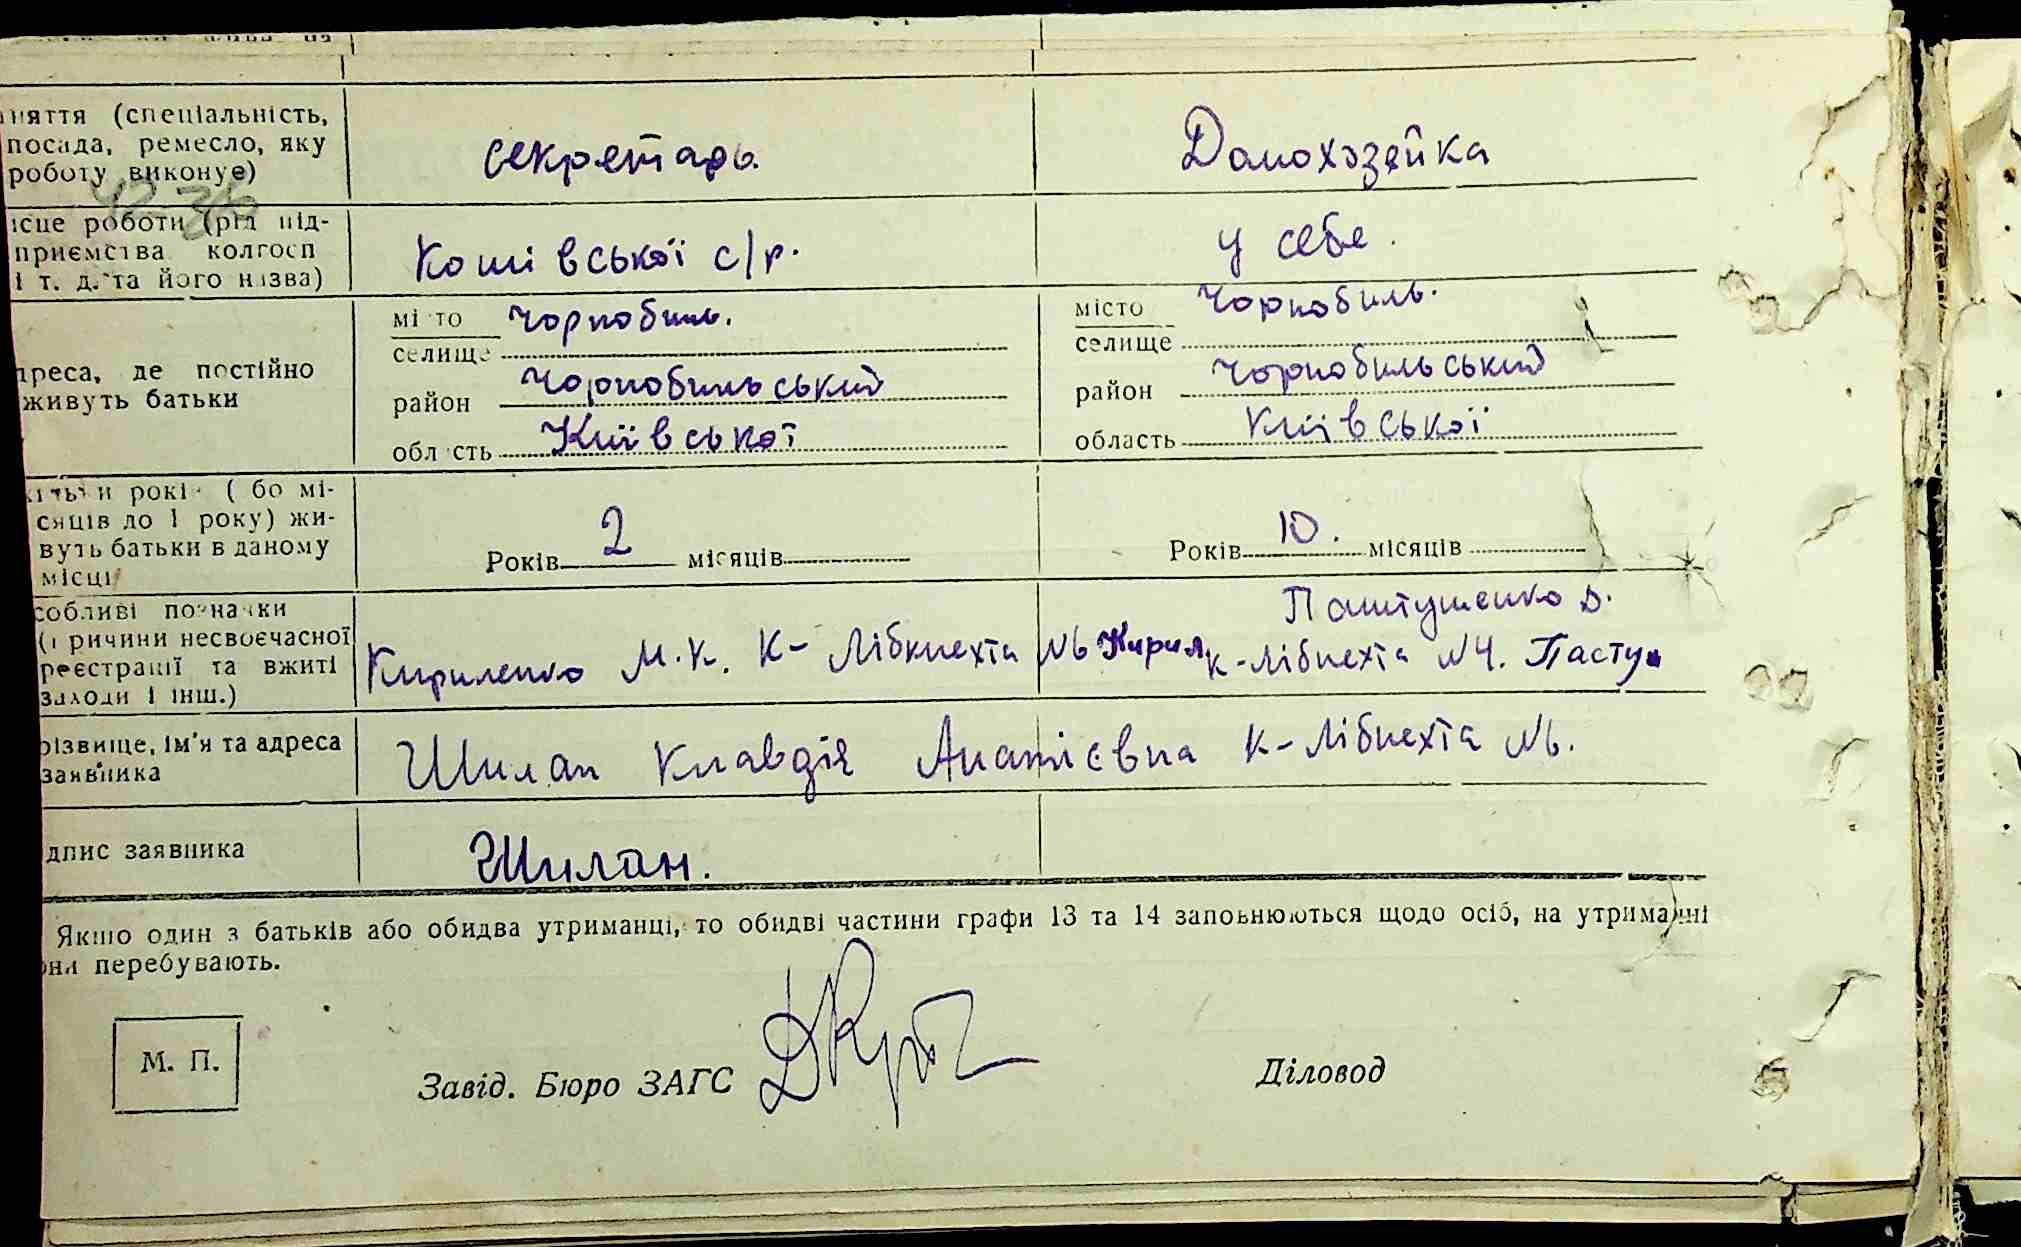 няття (спеціальність,
посада, ремесло, яку
роботу виконує)
секретарь.
Домохозяйка
ісце роботи (рід під-
приємства колгосп
і т. д. та його назва)
Кошівської с/р.
у себе.
реса, де постійно
живуть батьки
місто Чорнобиль.
селище
район Чорнобильський
область Київської
місто Чорнобиль.
селище
район Чорнобильський
область Київської
рокі ( бо мі-
сяців до 1 року) жи-
вуть батьки в даному
місці
Років 2 місяців
Років 10. місяців
собливі позначки
(причини несвоєчасної
реєстрації та вжиті
заходи і інш.)
Кириленко М.К. К-Лібкнехта №6 Кирил
Паштушенко В.
К-Лібнехта №4. Пасту
різвище, ім'я та адреса
заявника
Шилан Клавдія К-Лібнехта №6.
дпис заявника
Шилан.
Якщо один з батьків або обидва утриманці, то обидві частини графи 13 та 14 заповнюються щодо осіб, на утриманні
они перебувають.
М. П.
Завід. Бюро ЗАГС
Діловод